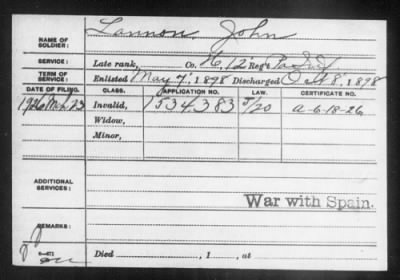 NAME OF SOLDIER: Lannon, John
SERVICE: Late rank, Co. H, 12 Reg't Pa. Inf.
TERM OF SERVICE: Enlisted May 7, 1898 Discharged Oct 8, 1898
DATE OF FILING. CLASS. APPLICATION NO. LAW. CERTIFICATE NO.
1926 Mch 23 Invalid, 1534,383 5/20 A-6-18-26
Widow,
Minor,
ADDITIONAL SERVICES:
War with Spain.
REMARKS:
Died , 1 , at